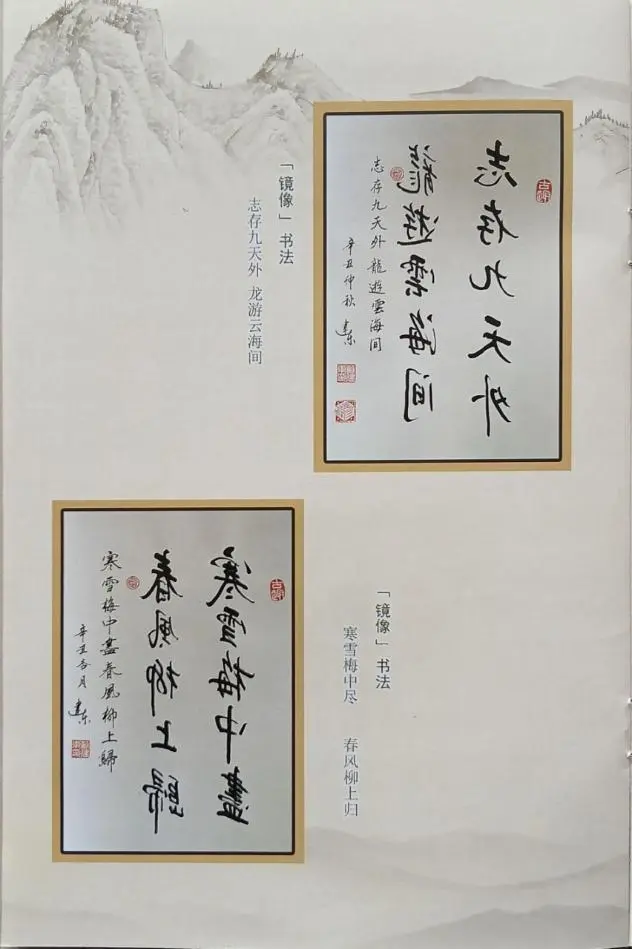 志存九天外
龍遊雲海间
志存九天外龍遊雲海间
辛丑仲秋 建东
「镜像」书法
志存九天外 龙游云海间
寒雪梅中盡
春風柳上歸
寒雪梅中盡春風柳上歸
辛丑杏月 建东
「镜像」书法
寒雪梅中尽 春风柳上归